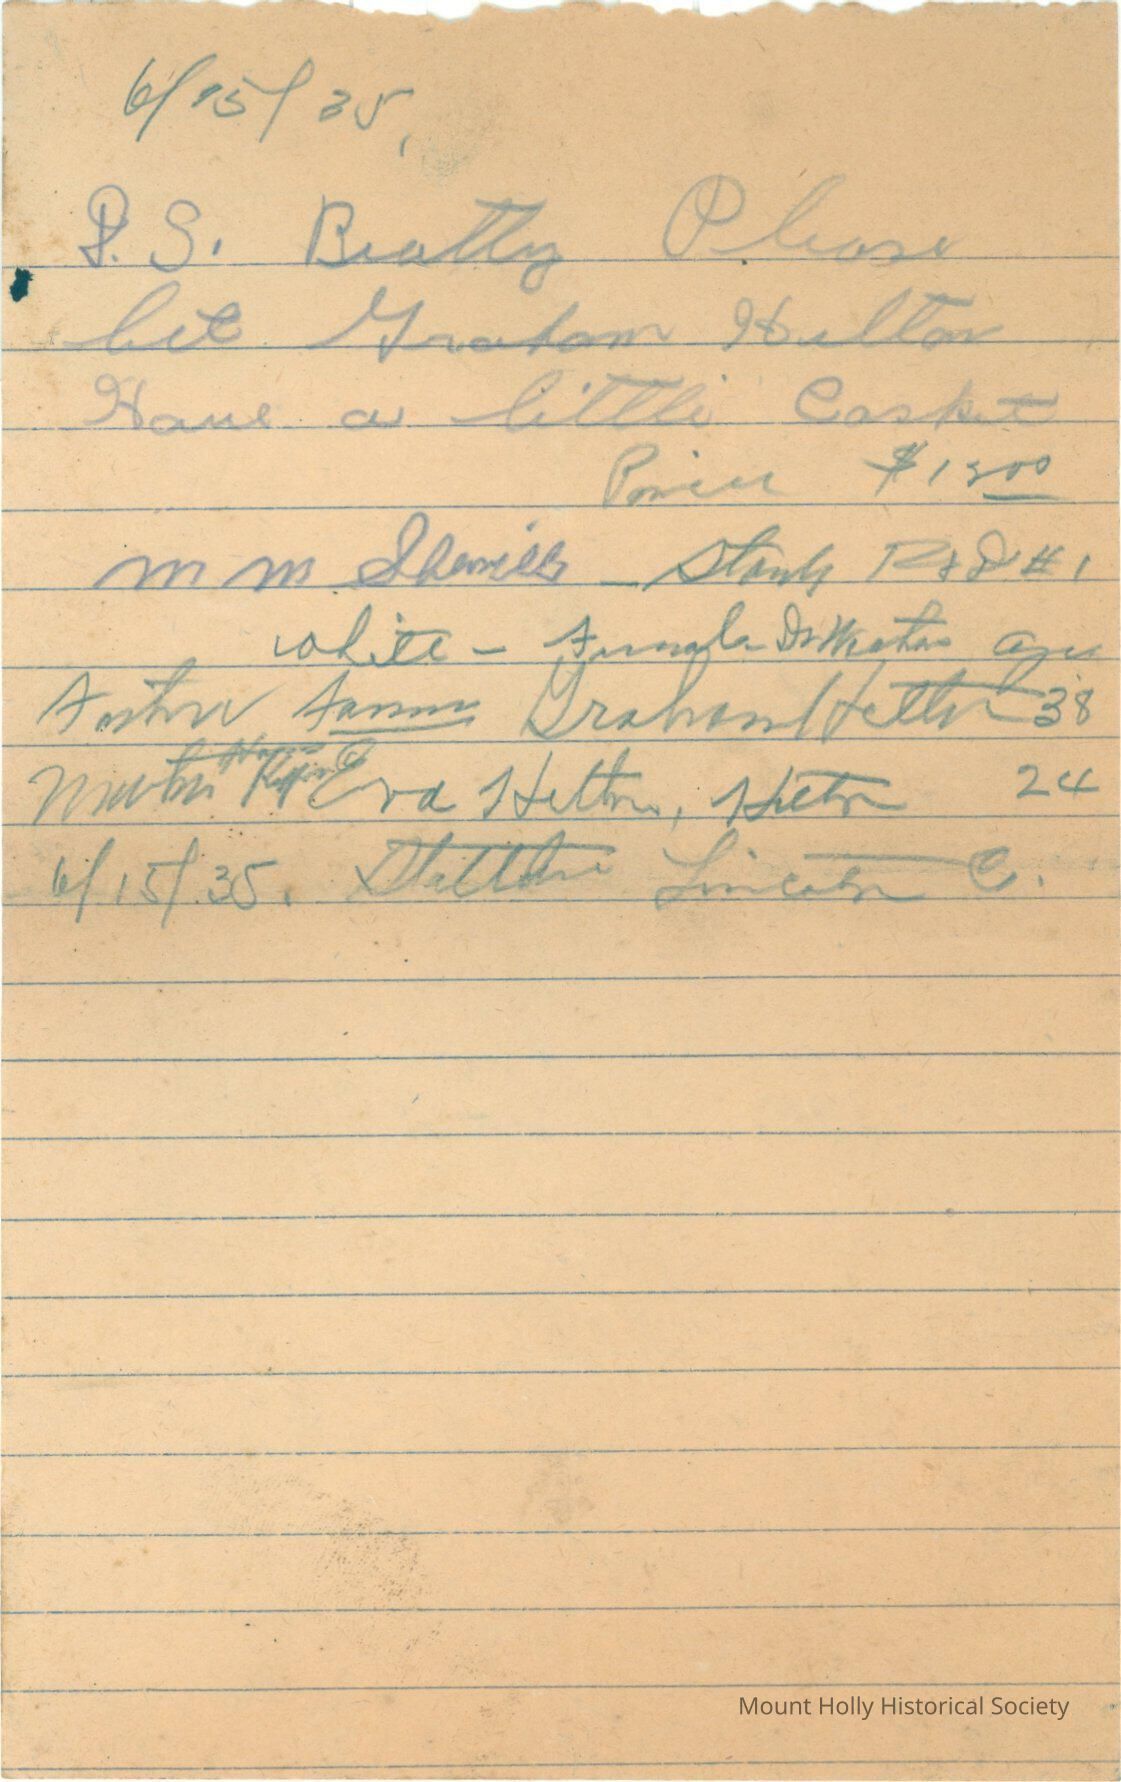 6/15/35,
P. S. Beatty Please
let Graham Helton
Have a little Casket
Price $15 00
M M Sherrill - Stanly RFD #1
white - Female Dr age
Father Graham Helton 38
Mother Eva Helton, 24
6/15/35. Lincoln C.
Mount Holly Historical Society